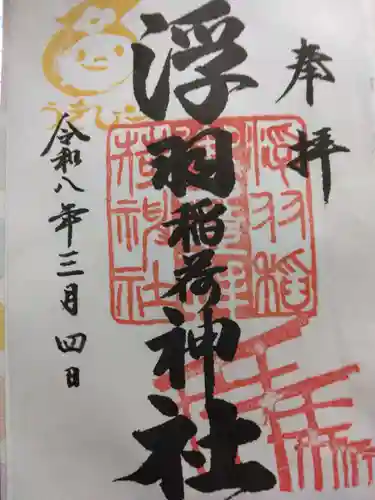 奉拝
浮羽稲荷神社
令和八年三月四日
浮羽稲
荷神社
うきぴー